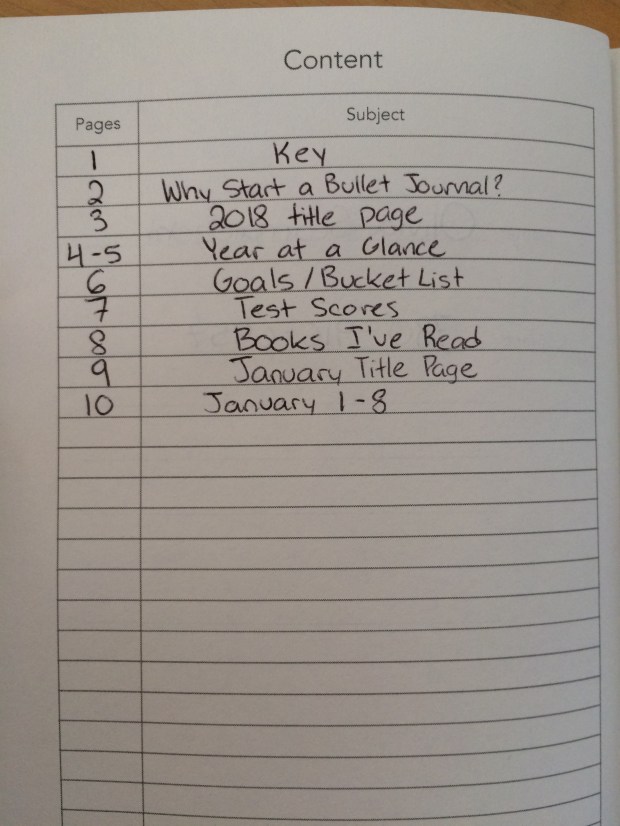 Content
Pages Subject
1 Key
2 Why Start a Bullet Journal?
3 2018 title page
4-5 Year at a Glance
6 Goals / Bucket List
7 Test Scores
8 Books I've Read
9 January Title Page
10 January 1-8